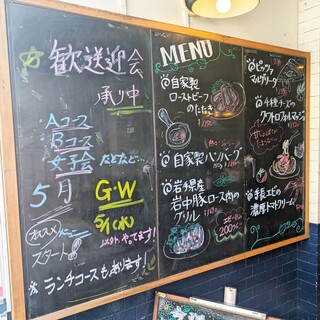 歓送迎会
承り中
Aコース
Bコース
女子会 などなど…
5月 G・W
5/1(水)
以外やってます!
オススメ
スタート
※ランチコースもあります!
MENU
自家製
ローストビーフ
のたたき
自家製ハンバーグ
岩手県産
岩中豚ロース肉の
グリル
200%
ピッツァ
マルゲリータ
4種チーズの
クワトロフォルマッジ
手長エビの
濃厚トマトクリーム